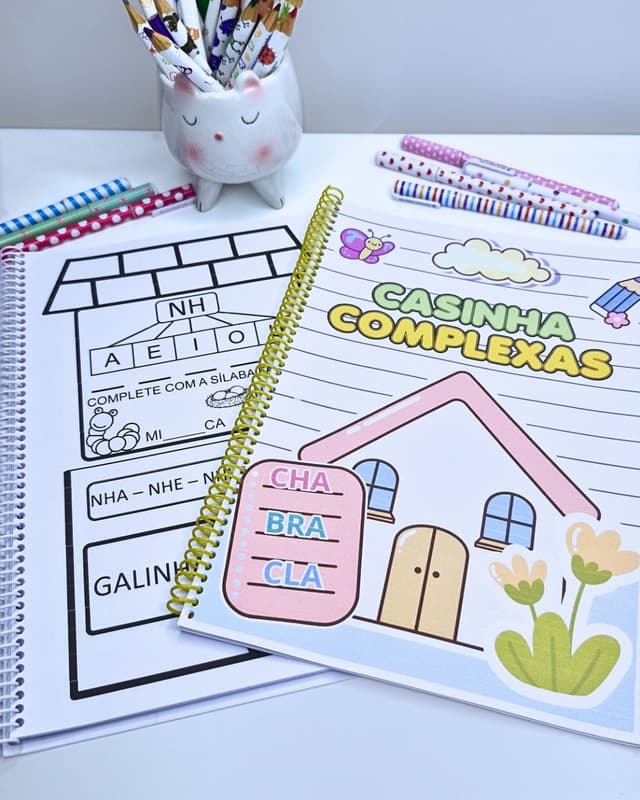 NH
A E I O
COMPLETE COM A SÍLABA
MI____ CA
NHA – NHE –
CASINHA
COMPLEXAS
CHA
BRA
CLA